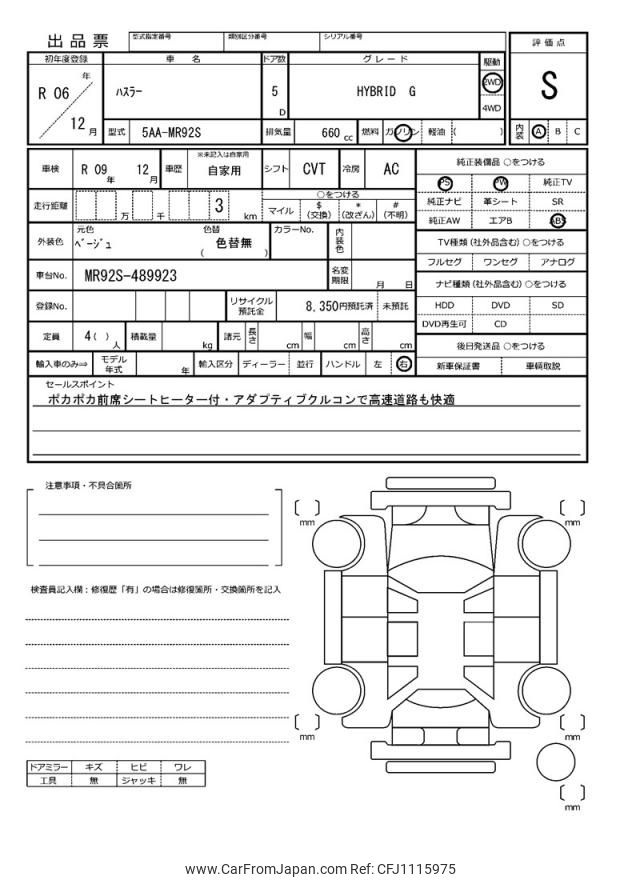 出品票
型式指定番号 類別区分番号 シリアル番号
評価点
S
初年度登録 車名 ドア数 グレード 駆動
R 06 年 12 月
ハスラー 5 D HYBRID G
2WD
4WD
型式 5AA-MR92S 排気量 660 cc 燃料 ガソリン 軽油 ( )
内装 A B C
車検 R 09 年 12 月 車歴 ※未記入は自家用 自家用 シフト CVT 冷房 AC
純正装備品 ○をつける
PS PW 純正TV
純正ナビ 革シート SR
純正AW エアB ABS
走行距離 万 千 3 km
○をつける
マイル $(交換) *(改ざん) #(不明)
外装色 元色 ベージュ 色替 色替無 ( ) カラーNo. 内装色
TV種類 (社外品含む) ○をつける
フルセグ ワンセグ アナログ
車台No. MR92S-489923 名変期限 月 日
ナビ種類 (社外品含む) ○をつける
HDD DVD SD
DVD再生可 CD
登録No. リサイクル預託金 8,350円預託済 未預託
定員 4 ( ) 人 積載量 kg 諸元 長さ cm 幅 cm 高さ cm
後日発送品 ○をつける
新車保証書 車輌取説
輸入車のみ⇒ モデル年式 年 輸入区分 ディーラー 並行 ハンドル 左 右
セールスポイント
ポカポカ前席シートヒーター付・アダプティブクルコンで高速道路も快適
注意事項・不具合箇所
検査員記入欄：修復歴「有」の場合は修復箇所・交換箇所を記入
mm
mm
mm
mm
mm
ドアミラー キズ ヒビ ワレ
工具 無 ジャッキ 無
www.CarFromJapan.com Ref: CFJ1115975